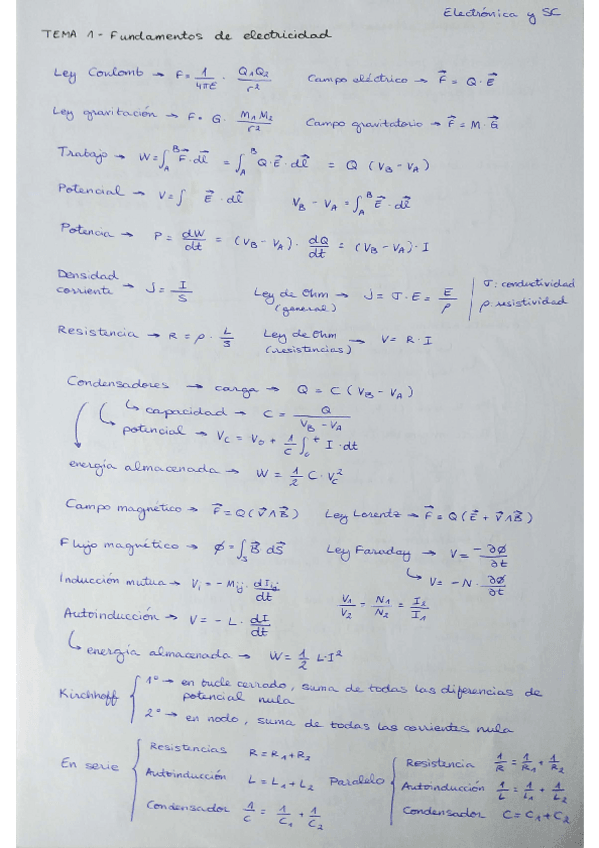 Electrónica y SC
TEMA 1 - Fundamentos de electricidad
Ley Coulomb → F = 1/4πε · Q1Q2/r² Campo eléctrico → F⃗ = Q · E⃗
Ley gravitación → F = G · M1M2/r² Campo gravitatorio → F⃗ = M · G⃗
Trabajo → W = ∫_A^B F⃗ · dl⃗ = ∫_A^B Q · E⃗ · dl⃗ = Q (V_B - V_A)
Potencial → V = ∫ E⃗ · dl⃗ V_B - V_A = ∫_A^B E⃗ · dl⃗
Potencia → P = dW/dt = (V_B - V_A) · dQ/dt = (V_B - V_A) · I
Densidad corriente → J = I/S Ley de Ohm (general) → J = σ · E = E/ρ | σ: conductividad ρ: resistividad
Resistencia → R = ρ · L/S Ley de Ohm (resistencias) → V = R · I
Condensadores → carga → Q = C (V_B - V_A)
↳ capacidad → C = Q/(V_B - V_A)
↳ potencial → V_C = V_0 + 1/C ∫_0^t I · dt
energía almacenada → W = 1/2 C · V_C²
Campo magnético → F⃗ = Q (V⃗ ∧ B⃗) Ley Lorentz → F⃗ = Q (E⃗ + V⃗ ∧ B⃗)
Flujo magnético → φ = ∫_S B⃗ dS⃗ Ley Faraday → V = -∂φ/∂t
↳ V = -N · ∂φ/∂t
Inducción mutua → V_i = - M_ij · dI_j/dt V1/V2 = N1/N2 = I2/I1
Autoinducción → V = - L · dI/dt
↳ energía almacenada → W = 1/2 L · I²
Kirchhoff { 1º → en bucle cerrado, suma de todas las diferencias de
potencial nula
2º → en nodo, suma de todas las corrientes nula
En serie { Resistencias R = R1 + R2 Paralelo { Resistencia 1/R = 1/R1 + 1/R2
Autoinducción L = L1 + L2 Autoinducción 1/L = 1/L1 + 1/L2
Condensador 1/C = 1/C1 + 1/C2 Condensador C = C1 + C2